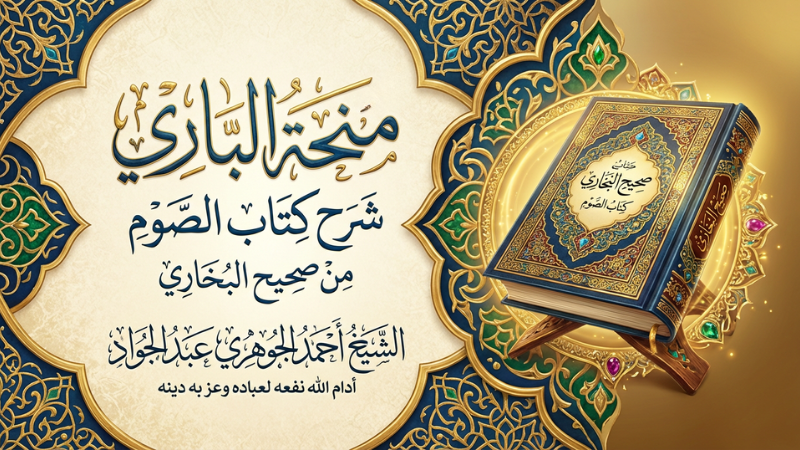 مِنْحَةُ البَارِي
شَرَح كِتَاب الصَّوْمِ
مِنْ صَحِيح البُخَارِي
الشَّيْخ أَحْمَدُ الجَوْهَرِي عَبْدُ الجَوَادِ
أدام الله نفعه لعباده وعز به دينه
كتاب
صحيح البخاري
كتاب الصوم
صحيح البخاري